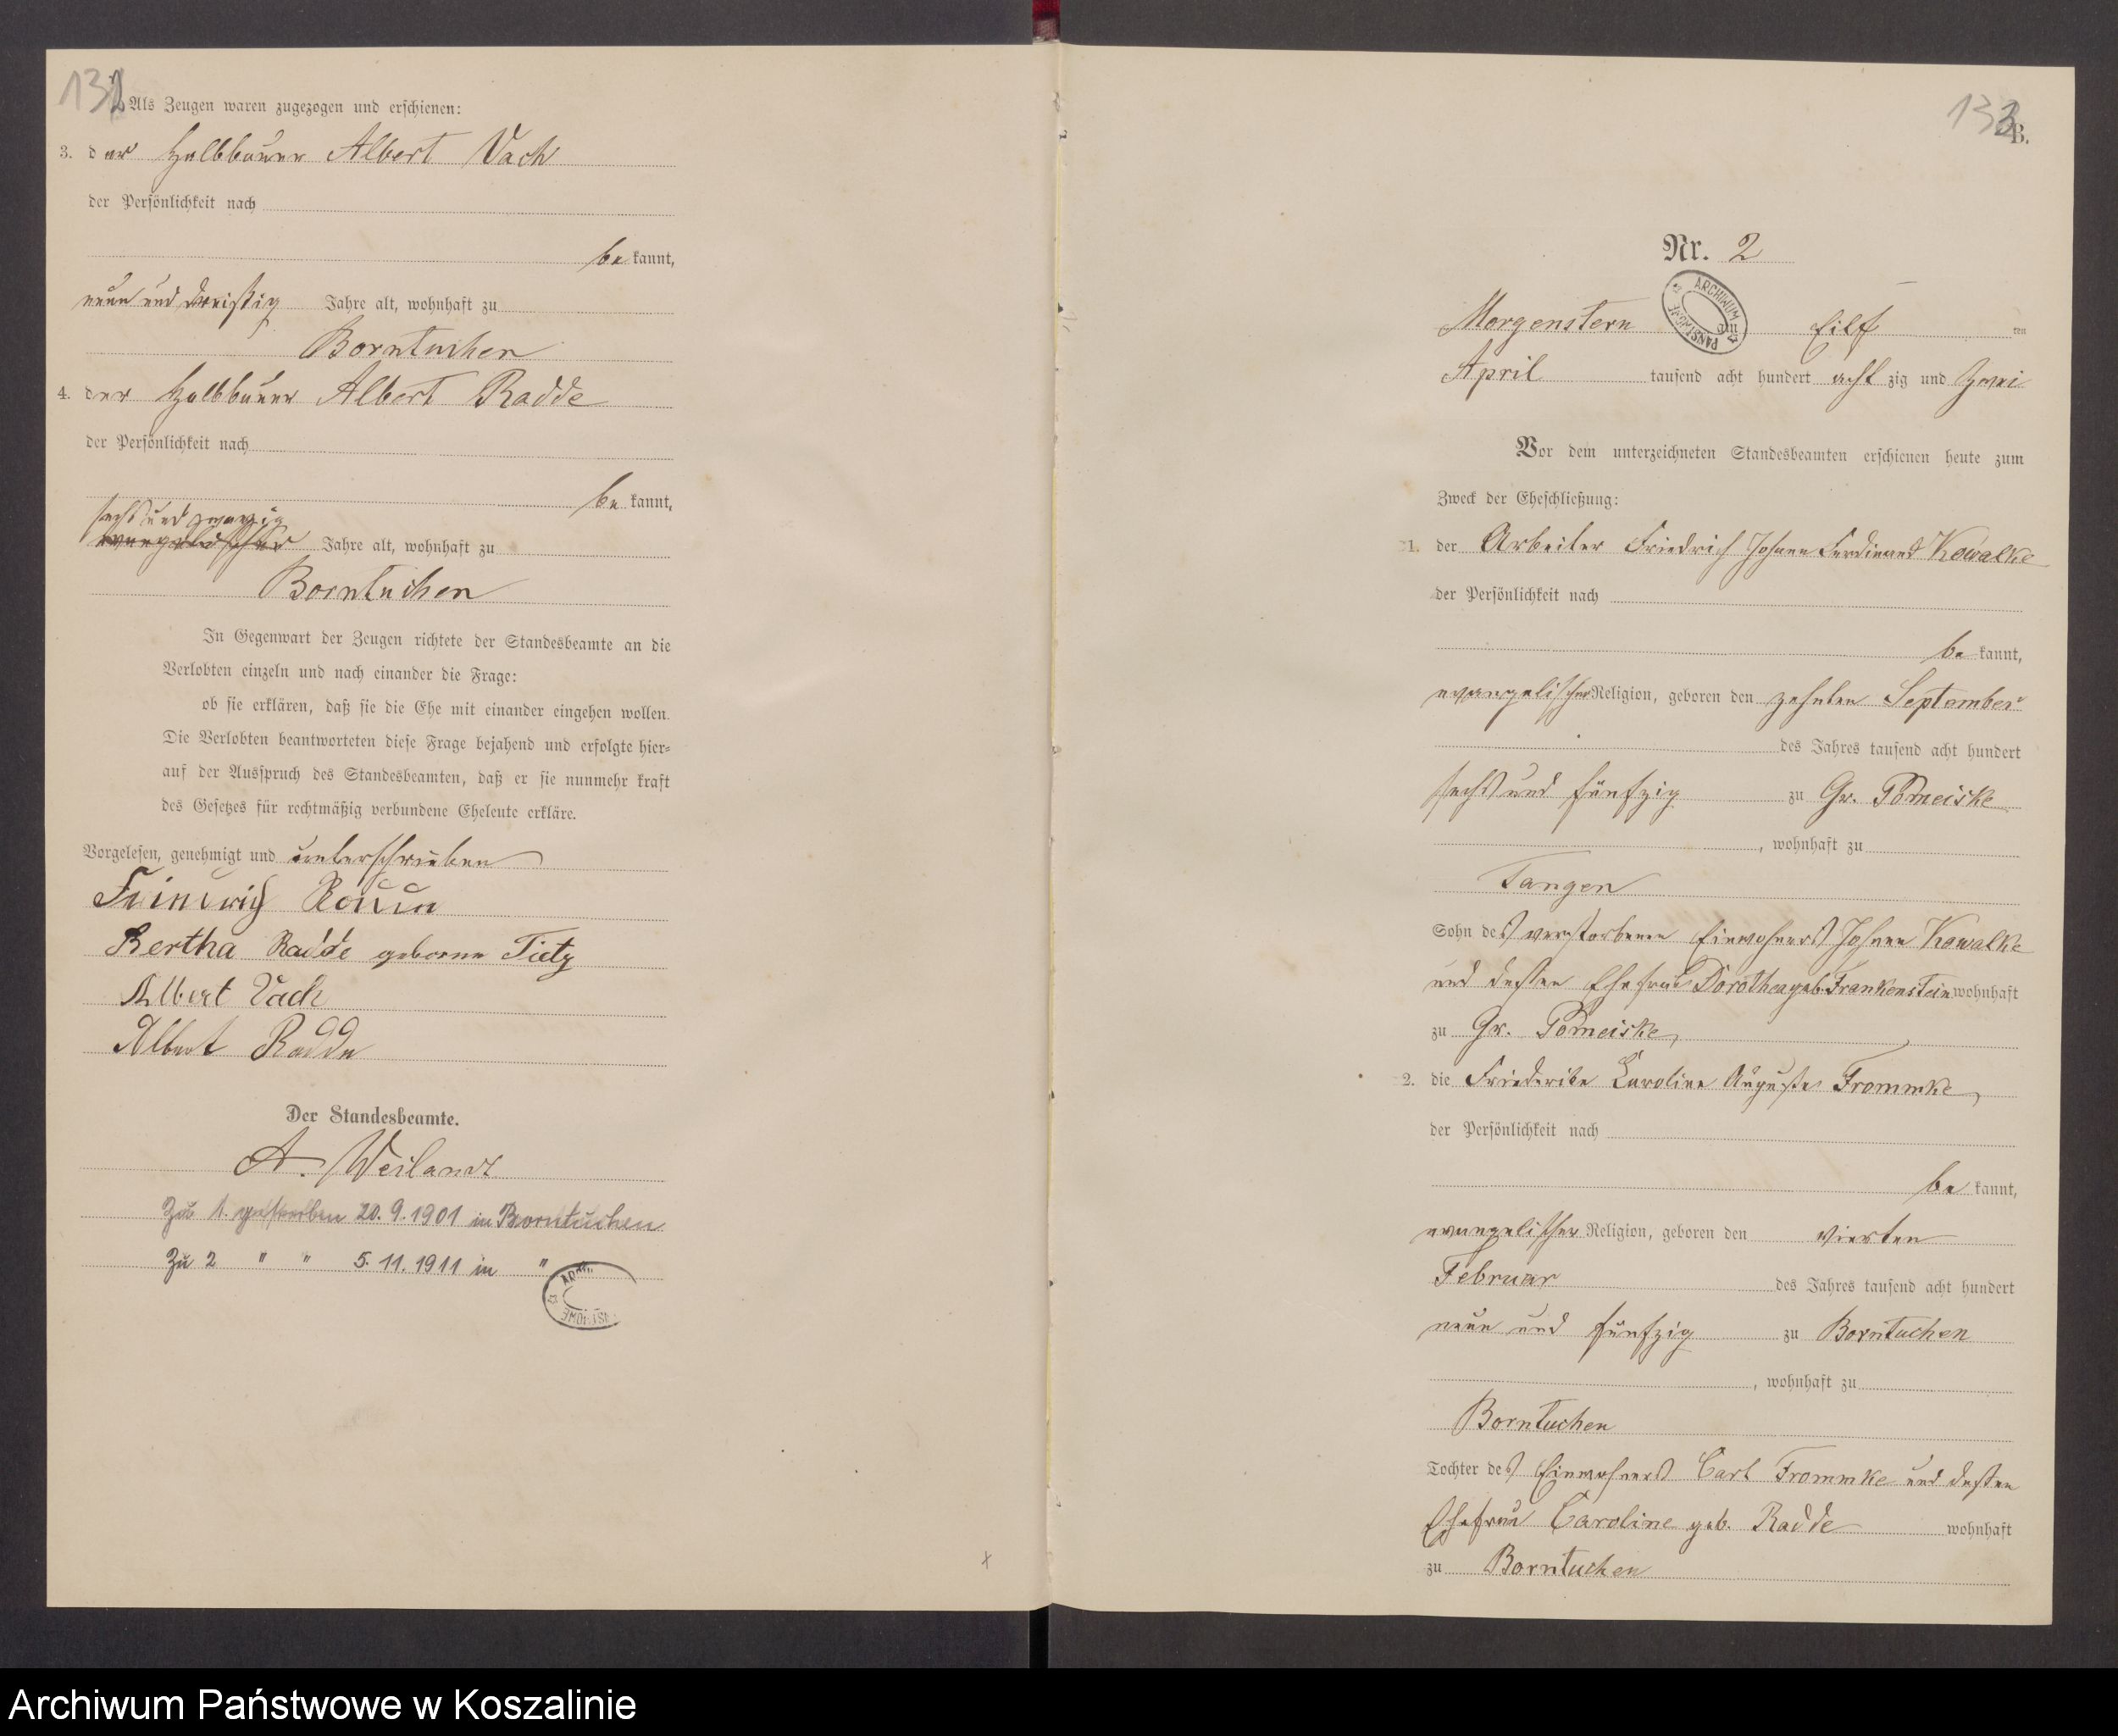 132
Als Zeugen waren zugezogen und erschienen:
3. der Halbbauer Albert Vach
der Persönlichkeit nach
be kannt,
neun und dreißig Jahre alt, wohnhaft zu
Borntuchen
4. der Halbbauer Albert Radde
der Persönlichkeit nach
be kannt,
sechs und zwanzig
evangelischer Jahre alt, wohnhaft zu
Borntuchen
In Gegenwart der Zeugen richtete der Standesbeamte an die
Verlobten einzeln und nach einander die Frage:
ob sie erklären, daß sie die Ehe mit einander eingehen wollen.
Die Verlobten beantworteten diese Frage bejahend und erfolgte hier-
auf der Ausspruch des Standesbeamten, daß er sie nunmehr kraft
des Gesetzes für rechtmäßig verbundene Eheleute erkläre.
Vorgelesen, genehmigt und unterschrieben
Bertha Radde geborne Tietz
Albert Vach
Albert Radde
Der Standesbeamte.
A. Weilandt
Zu 1. gestorben 20.9.1901 in Borntuchen
Zu 2 " " 5.11.1911 in "
133
B.
Nr. 2
ARCHIWUM PAŃSTWOWE
Morgenstern am Eilf ten
April tausend acht hundert acht zig und zwei
Vor dem unterzeichneten Standesbeamten erschienen heute zum
Zweck der Eheschließung:
1. der Arbeiter Friedrich Johann Ferdinand Kowalke
der Persönlichkeit nach
be kannt,
evangelischer Religion, geboren den zehnten September
des Jahres tausend acht hundert
sechs und fünfzig zu Gr. Pomeiske
, wohnhaft zu
Tangen
Sohn des verstorbenen Einwohners Johann Kowalke
und dessen Ehefrau Dorothea geb. Frankenstein wohnhaft
zu Gr. Pomeiske,
2. die Friederike Caroline Auguste Frommke,
der Persönlichkeit nach
be kannt,
evangelischer Religion, geboren den vierten
Februar des Jahres tausend acht hundert
neun und fünfzig zu Borntuchen
, wohnhaft zu
Borntuchen
Tochter des Einwohners Carl Frommke und dessen
Ehefrau Caroline geb. Radde wohnhaft
zu Borntuchen
Archiwum Państwowe w Koszalinie